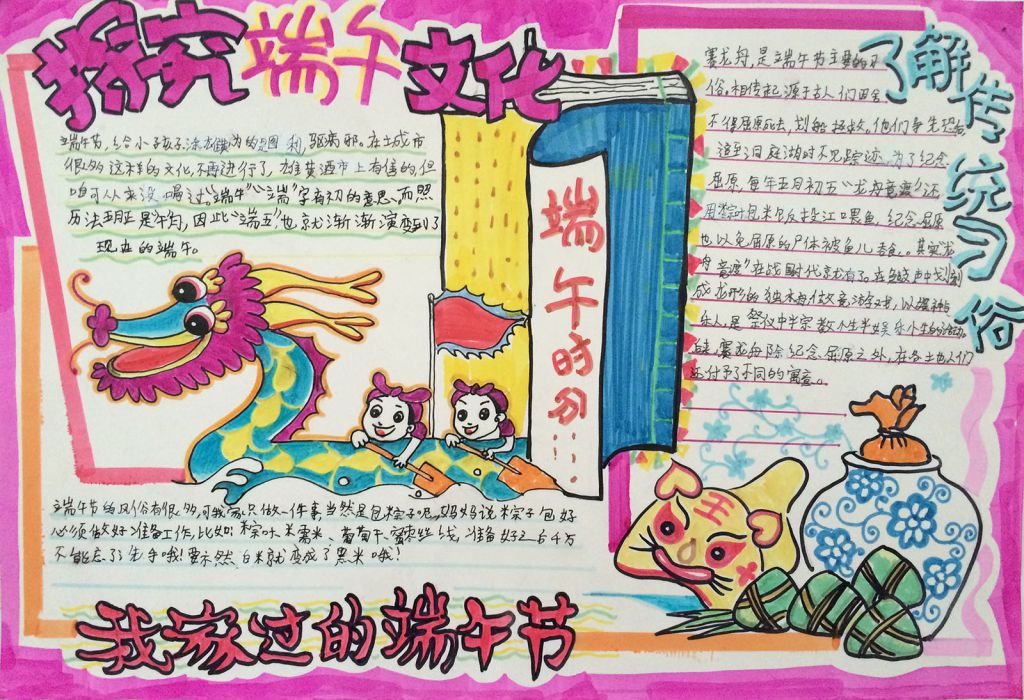 探究端午文化
端午节,给小孩子涂雄黄的是图利,驱病邪。在土成市
很多这样的文化,不再进行了,雄黄酒市上有售的,但
咱可从来没喝过。"端午""端"字有初的意思,而照
历法五月正是午旬,因此"端五"也就渐渐演变到了
现在的端午。
端午时分……
了解传统习俗
赛龙舟,是端午节主要的习
俗。相传起源于古人们因舍
不得屈原死去,划船拯救。他们争先恐后,
追至洞庭湖时不见踪迹,为了纪念
屈原,每年五月初五"龙舟竞渡"还
用粽叶包米饭投江喂鱼,纪念屈原
也以免屈原的尸体被鱼儿吞食。其实龙
舟竞渡在战国时代就有了。在鼓声中划刻
成龙形的独木舟做竞渡游戏,以娱神与
乐人,是祭仪中半宗教性半娱乐性的
赛龙舟除纪念屈原之外,在各土也人们
还付予了不同的寓意。
端午节的风俗有很多,可我家只做一件事,当然是包粽子呢,妈妈说粽子包好
必须做好准备工作,比如:粽叶、米需米、葡萄干、蜜枣些线,准备好之后千万
不能忘了洗手哦!要不然白米就变成了黑米哦!
我家过的端午节
王